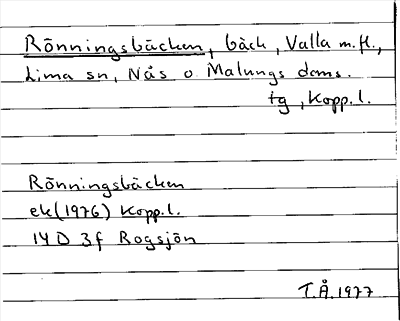 Rönningsbäcken, bäck, Valla m.fl.,
Lima sn, Nås o Malungs doms.
tg, Kopp.l.
Rönningsbäcken
ek(1976) Kopp.l.
14 D 3f Rogsjön
T.Å.1977